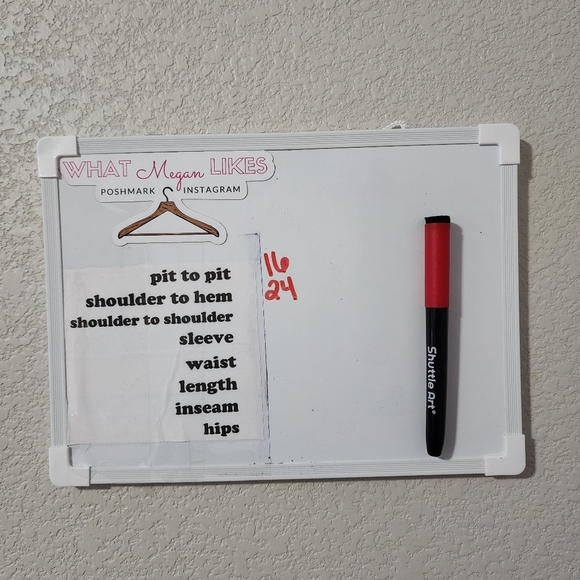 WHAT Megan LIKES
POSHMARK INSTAGRAM
pit to pit 16
shoulder to hem 24
shoulder to shoulder
sleeve
waist
length
inseam
hips
Shuttle Art®